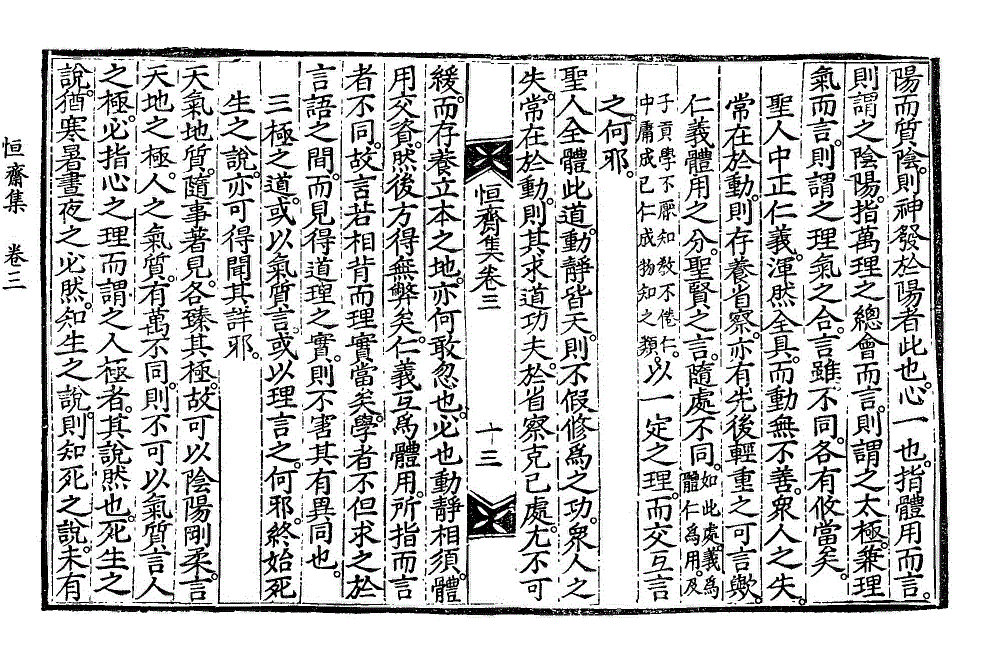 陽而質陰。則神發於陽者此也。心一也。指體用而言。
則謂之陰陽。指萬理之總會而言。則謂之太極。兼理
氣而言。則謂之理氣之合。言雖不同。各有攸當矣。
聖人中正仁義。渾然全具。而動無不善。衆人之失。
常在於動。則存養省察。亦有先後輕重之可言歟。
仁義體用之分。聖賢之言。隨處不同。如此處。義爲體仁爲用。及
子貢學不厭知敎不倦仁。中庸成己仁成物知之類。以一定之理。而交互言
之。何邪。
聖人全體此道。動靜皆天。則不假修爲之功。衆人之
失。常在於動。則其求道功夫。於省察克己處。尤不可
恒齋集卷三 十三
緩。而存養立本之地。亦何敢忽也。必也動靜相須。體
用交資。然後方得無弊矣。仁義互爲體用。所指而言
者不同。故言若相背而理實當矣。學者不但求之於
言語之間。而見得道理之實。則不害其有異同也。
三極之道。或以氣質言。或以理言之。何邪。終始死
生之說。亦可得聞其詳邪。
天氣地質。隨事著見。各臻其極。故可以陰陽剛柔。言
天地之極。人之氣質。有萬不同。則不可以氣質言人
之極。必指心之理而謂之人極者。其說然也。死生之
說。猶寒暑晝夜之必然。知生之說。則知死之說。未有
恒齋集 卷三